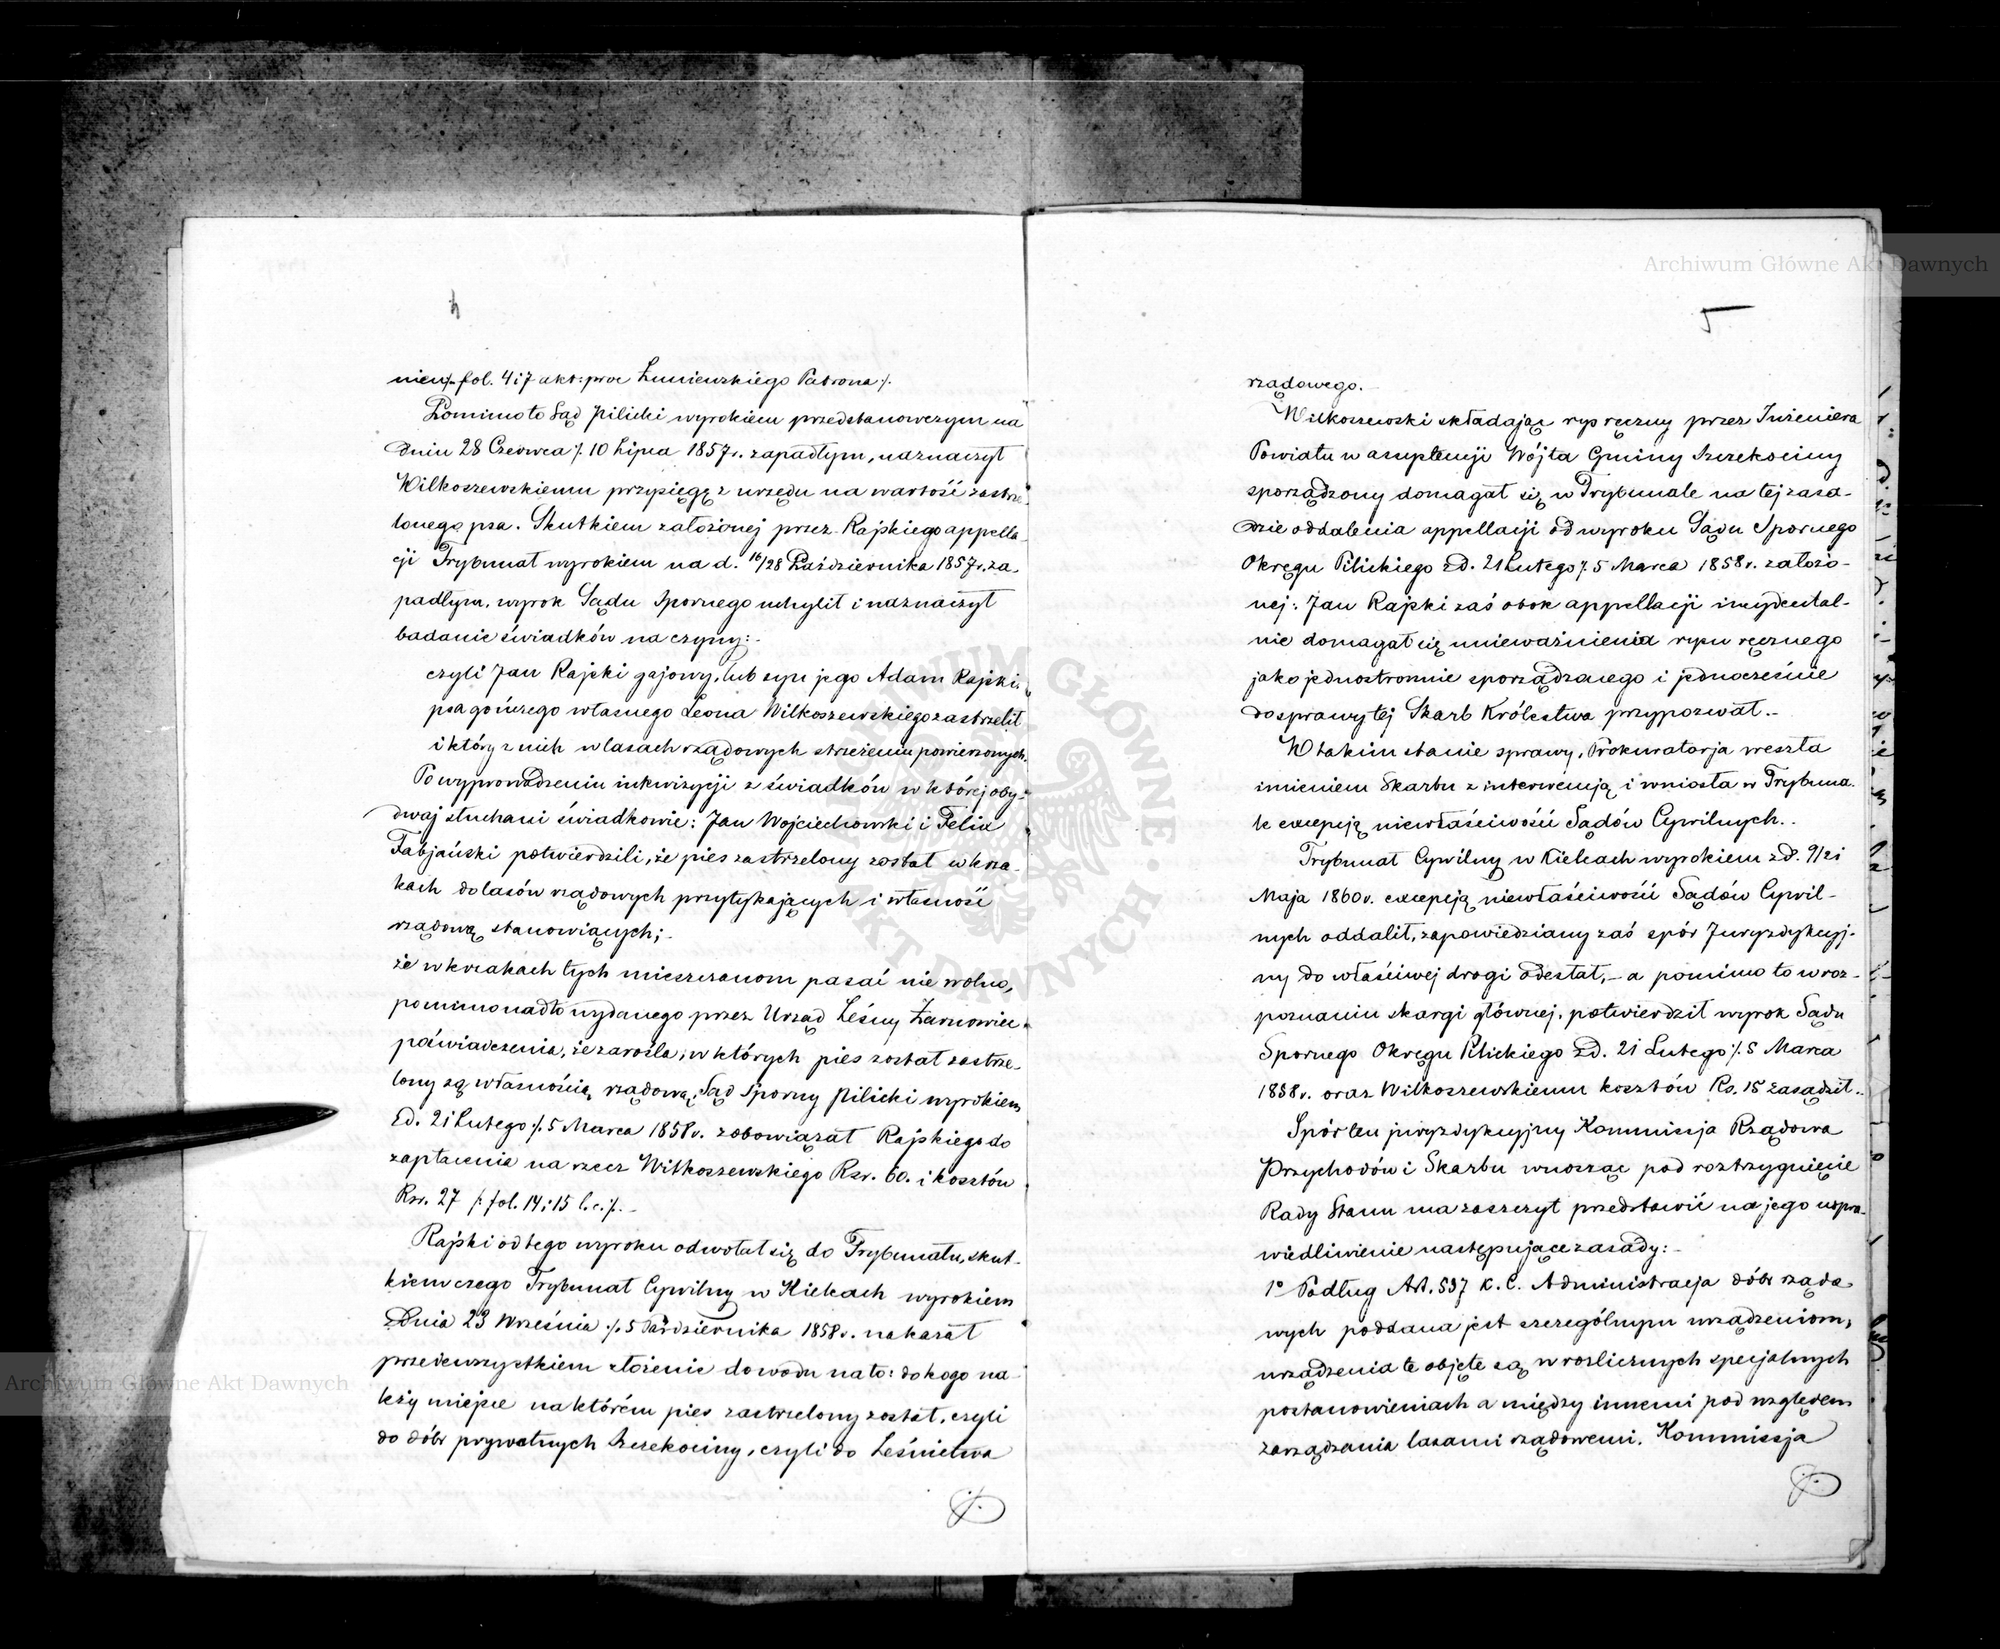 Archiwum Główne Akt Dawnych
4
niem /. fol. 4 i 7 akt: proc Łuniewskiego Patrona /.
Pomimo to Sąd Pilicki wyrokiem przedstanowczym na
dniu 28 Czerwca /. 10 Lipca 1857 r. zapadłym, naznaczył
Wilkoszewskiemu przysięgę z urzędu na wartość zastrze-
lonego psa. Skutkiem założonej przez Rajskiego appella-
cji Trybunał wyrokiem na d. 16/28 Października 1857 r. za-
padłym, wyrok Sądu Spornego uchylił i naznaczył
badanie świadków na czyny:-
czyli Jan Rajski gajowy, lub syn jego Adam Rajski
psa gończego własnego Leona Wilkoszewskiego zastrzelił
i który z nich w lasach rządowych strzeżeniu powierzonych.
Po wyprowadzeniu inkwizycji z świadków w której oby-
dwaj słuchani świadkowie: Jan Wojciechowski i Felix
Fabjański potwierdzili, że pies zastrzelony został w krza-
kach do lasów rządowych przytykających i własność
rządową stanowiących;-
że w krzakach tych mieszczanom pasać nie wolno,
pomimo nadto wydanego przez Urząd Leśny Żarnowiec
poświadczenia, że zarośla, w których pies został zastrze-
lony są własnością rządową, Sąd Sporny Pilicki wyrokiem
z d. 21 Lutego /. 5 Marca 1858 r. zobowiązał Rajskiego do
zapłacenia na rzecz Wilkoszewskiego Rsr. 60. i kosztów
Rsr. 27 /: fol. 14 i 15 l. c. /.-
Rajski od tego wyroku odwołał się do Trybunału, skut-
kiem czego Trybunał Cywilny w Kielcach wyrokiem
z dnia 23 Września /. 5 Października 1858 r. nakazał
przedewszystkiem złożenie dowodu na to: do kogo na-
leży miejsce na którém pies zastrzelony został, czyli
do dóbr prywatnych Szczekociny, czyli do Leśnictwa
5
rządowego.-
Wilkoszewski składając rys ręczny przez Inżeniera
Powiatu w assystencji Wójta Gminy Szczekociny
sporządzony domagał się w Trybunale na tej zasa-
dzie oddalenia appellacji od wyroku Sądu Spornego
Okręgu Pilickiego z d. 21 Lutego /. 5 Marca 1858 r. założo-
nej: Jan Rajski zaś obok appellacji incydental-
nie domagał się unieważnienia rysu ręcznego
jako jednostronnie sporządzonego i jednocześnie
do sprawy tej Skarb Królestwa przypozwał.-
W takim stanie sprawy, Prokuratorja weszła
imieniem Skarbu z interwencją i wniosła w Trybuna-
le excepcją niewłaściwości Sądów Cywilnych.-
Trybunał Cywilny w Kielcach wyrokiem z d. 9/21
Maja 1860 r. excepcją niewłaściwości Sądów Cywil-
nych oddalił, zapowiedziany zaś spór Juryzdykcyj-
ny do właściwej drogi odesłał,- a pomimo to w roz-
poznaniu skargi głównej, potwierdził wyrok Sądu
Spornego Okręgu Pilickiego z d. 21 Lutego /. 5 Marca
1858 r. oraz Wilkoszewskiemu kosztów Rs. 15 zasądził.-
Spór ten juryzdykcyjny Kommissja Rządowa
Przychodów i Skarbu wnosząc pod rozstrzygnięcie
Rady Stanu ma zaszczyt przedstawić na jego uspra-
wiedliwienie następujące zasady:-
1º Podług Art. 537 K. C. Administracja dóbr rządo-
wych poddana jest szczególnym urządzeniom,
urządzenia te objęte są w rozlicznych specjalnych
postanowieniach a między innemi pod względem
zarządzania lasami rządowemi. Kommissja
ARCHIWUM GŁÓWNE AKT DAWNYCH
Archiwum Główne Akt Dawnych